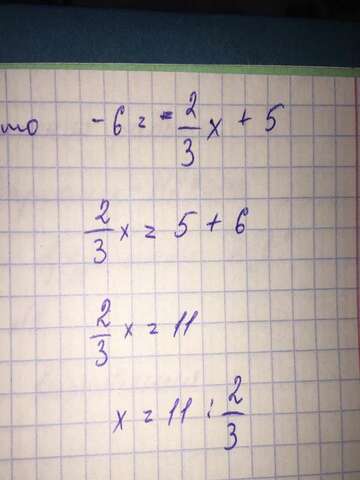 то -6 = -2/3 x + 5
2/3 x = 5 + 6
2/3 x = 11
x = 11 : 2/3